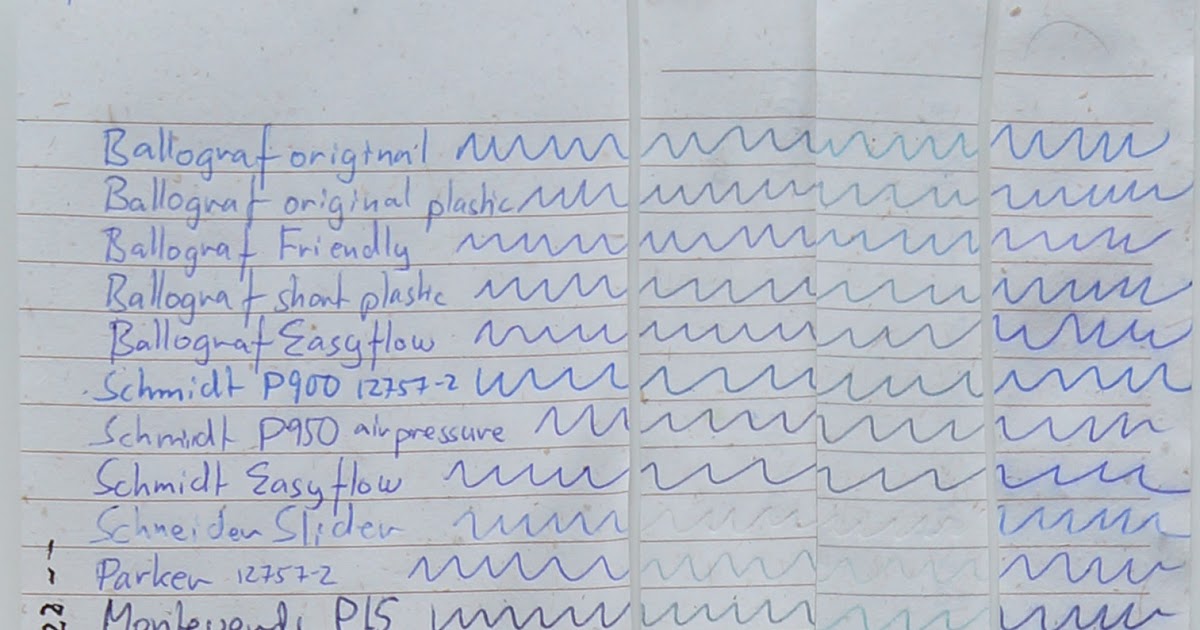 Ballograf original
Ballograf original plastic
Ballograf Friendly
Ballograf short plastic
Ballograf Easyflow
Schmidt P900 12757-2
Schmidt P950 airpressure
Schmidt Easyflow
Schneider Slider
Parker 12757-2
Monteverde P15